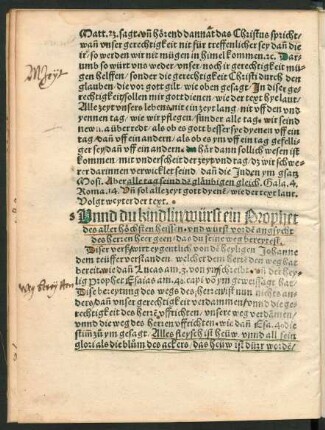 Matt. 23. sagt/vñ hörend dannat das Christus spricht/
wañ vnser gerechtigkeit nit für treffenlicher sey dañ die
it/ so werden wir nit mügen in himel kommen. ꝛc. Dar-
umb so würt vns weder vnser noch it gerechtigkeit mü-
gen helffen/ sonder die gerechtigkeit Christi durch den
glauben/ die vor got gilt/ wie oben gesagt. In diser ge-
rechtigkeit sollen mir gott dienen/ wie der text hye laut/
Alle zeyt vnsers lebens/ nit ein zeyt lang/ nit vff den vnd
yennen tag/ wie wir pflegen/ sunder alle tag/ wir seind
aber tag als ob es got besser spe dyenen vff ein
tag/ dañ vff ein andern/ als ob es ym vff ein tag gefelli-
ger sey dañ vff ein andern. Hår dann sollich wesen ist
kommen/ mit vnderscheit der zeyt vnd tag/ dz wir schwe-
rer darinnen verwicklet seind/ dañ die Juden ym gsatz
Mosi. Aber alle tag seind dē gläubigen gleich. Gala. 4.
Roma. 14. Vñ sol alle zeyt got dyenē/ wie der text laut.
Volgt weyter der text.
Vnnd du kindlin würst ein Prophet
des aller höchsten heissen/ vnd würst vor dē angsycht
des herren her geen/ das du seine weg bereytest.
Diser verß würt eygentlich von dē heyligen Johanne
dem teüffer verstanden/ welcher dem herrē den weg hat
bereit/ wie dañ Lucas am 3. von ym schreibt/ vñ der hey-
lig Prophet Esaias am 40. capi. vō ym geweissagt hat/
Dise bereytung des wegs des herren ist nun nichts an-
ders/ dañ vnser gerechtigkeit verdammen/ vnnd die ge-
rechtigkeit des herrē vffrichten/ vnsere weg verdämen/
vnnd die weg des herren vffrichten/ wie dañ Esa. 40. die
stim̃ zů ym gesagt/ Alles fleysch ist heüw/ vnnd all sein
glori als die blům des ackers/ das heüw ist dürr worden/